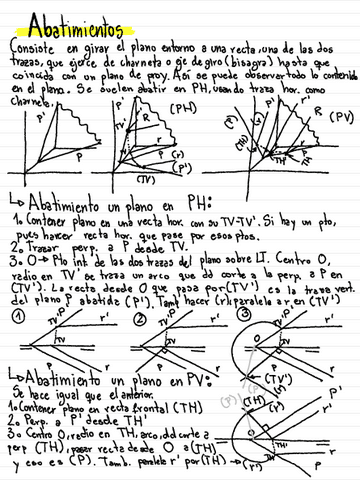 Abatimientos
Consiste en girar el plano entorno a una recta, una de las dos
trazas, que ejerce de charnela o eje de giro (bisagra) hasta que
coincida con un plano de proy. Así se puede observar todo lo contenido
en el plano. Se suelen abatir en PH, usando traza hor. como
charnela.
P' P
P' TV' R (PH) P (r) (P') (TV)
(P) (TH) (r) P' r' R (PV) TH' r TH P
↳ Abatimiento un plano en PH:
1º Contener plano en una recta hor. con su TV-TV'. Si hay un pto,
pues hacer recta hor. que pase por esos ptos.
2º Trazar perp. a P desde TV.
3º O → Pto int de las dos trazas del plano sobre LT. Centro O,
radio en TV' se traza un arco que dd corte a la perp. a P en
(TV'). La recta desde O que pasa por (TV') es la traza vert.
del plano P abatida (P'). Tamb hacer (r) paralela a r, en (TV')
① P' TV' r' TV r P
② P' TV' r' TV r P
③ P' TV' r' O TV r P (TV') (r) (P')
↳ Abatimiento un plano en PV:
Se hace igual que el anterior.
1º Contener plano en recta frontal (TH)
2º Perp. a P' desde TH'
3º Centro O, radio en TH, arco, dd corte a
perp (TH), pasar recta desde O a (TH)
y eso es (P). Tamb. paralela r' por (TH) → (r')
(P) (TH) P' r' O TH' r TH P